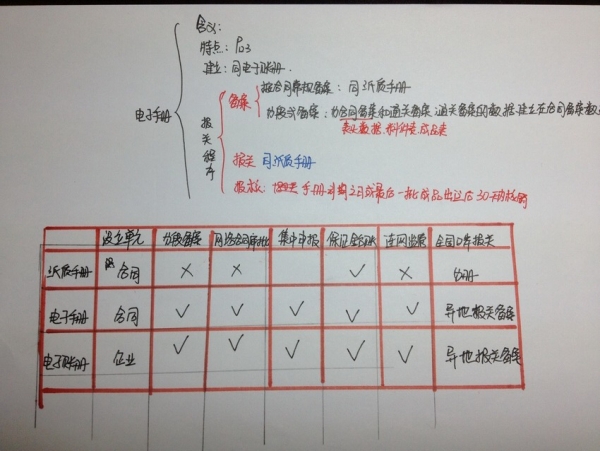 含义:
特点: P103
建立: 同电子账册.
电子手册
报关程序
备案
按合同审批备案: 同纸质手册
分段式备案: 分合同备案和通关备案, 通关备案的数据, 建立在合同备案数
表头数据. 料件表, 成品表
报关 同纸质手册
报核: 经营 手册到期之日或最后一批成品出运后30天内核销
设立单元 分段备案 网络合同审批 集中申报 保证金台账 连网监管 全国口岸报关
纸质手册 合同 × × ✓ × 分册
电子手册 合同 ✓ ✓ ✓ ✓ ✓ 异地报关备案
电子账册 企业 ✓ ✓ ✓ ✓ ✓ 异地报关备案